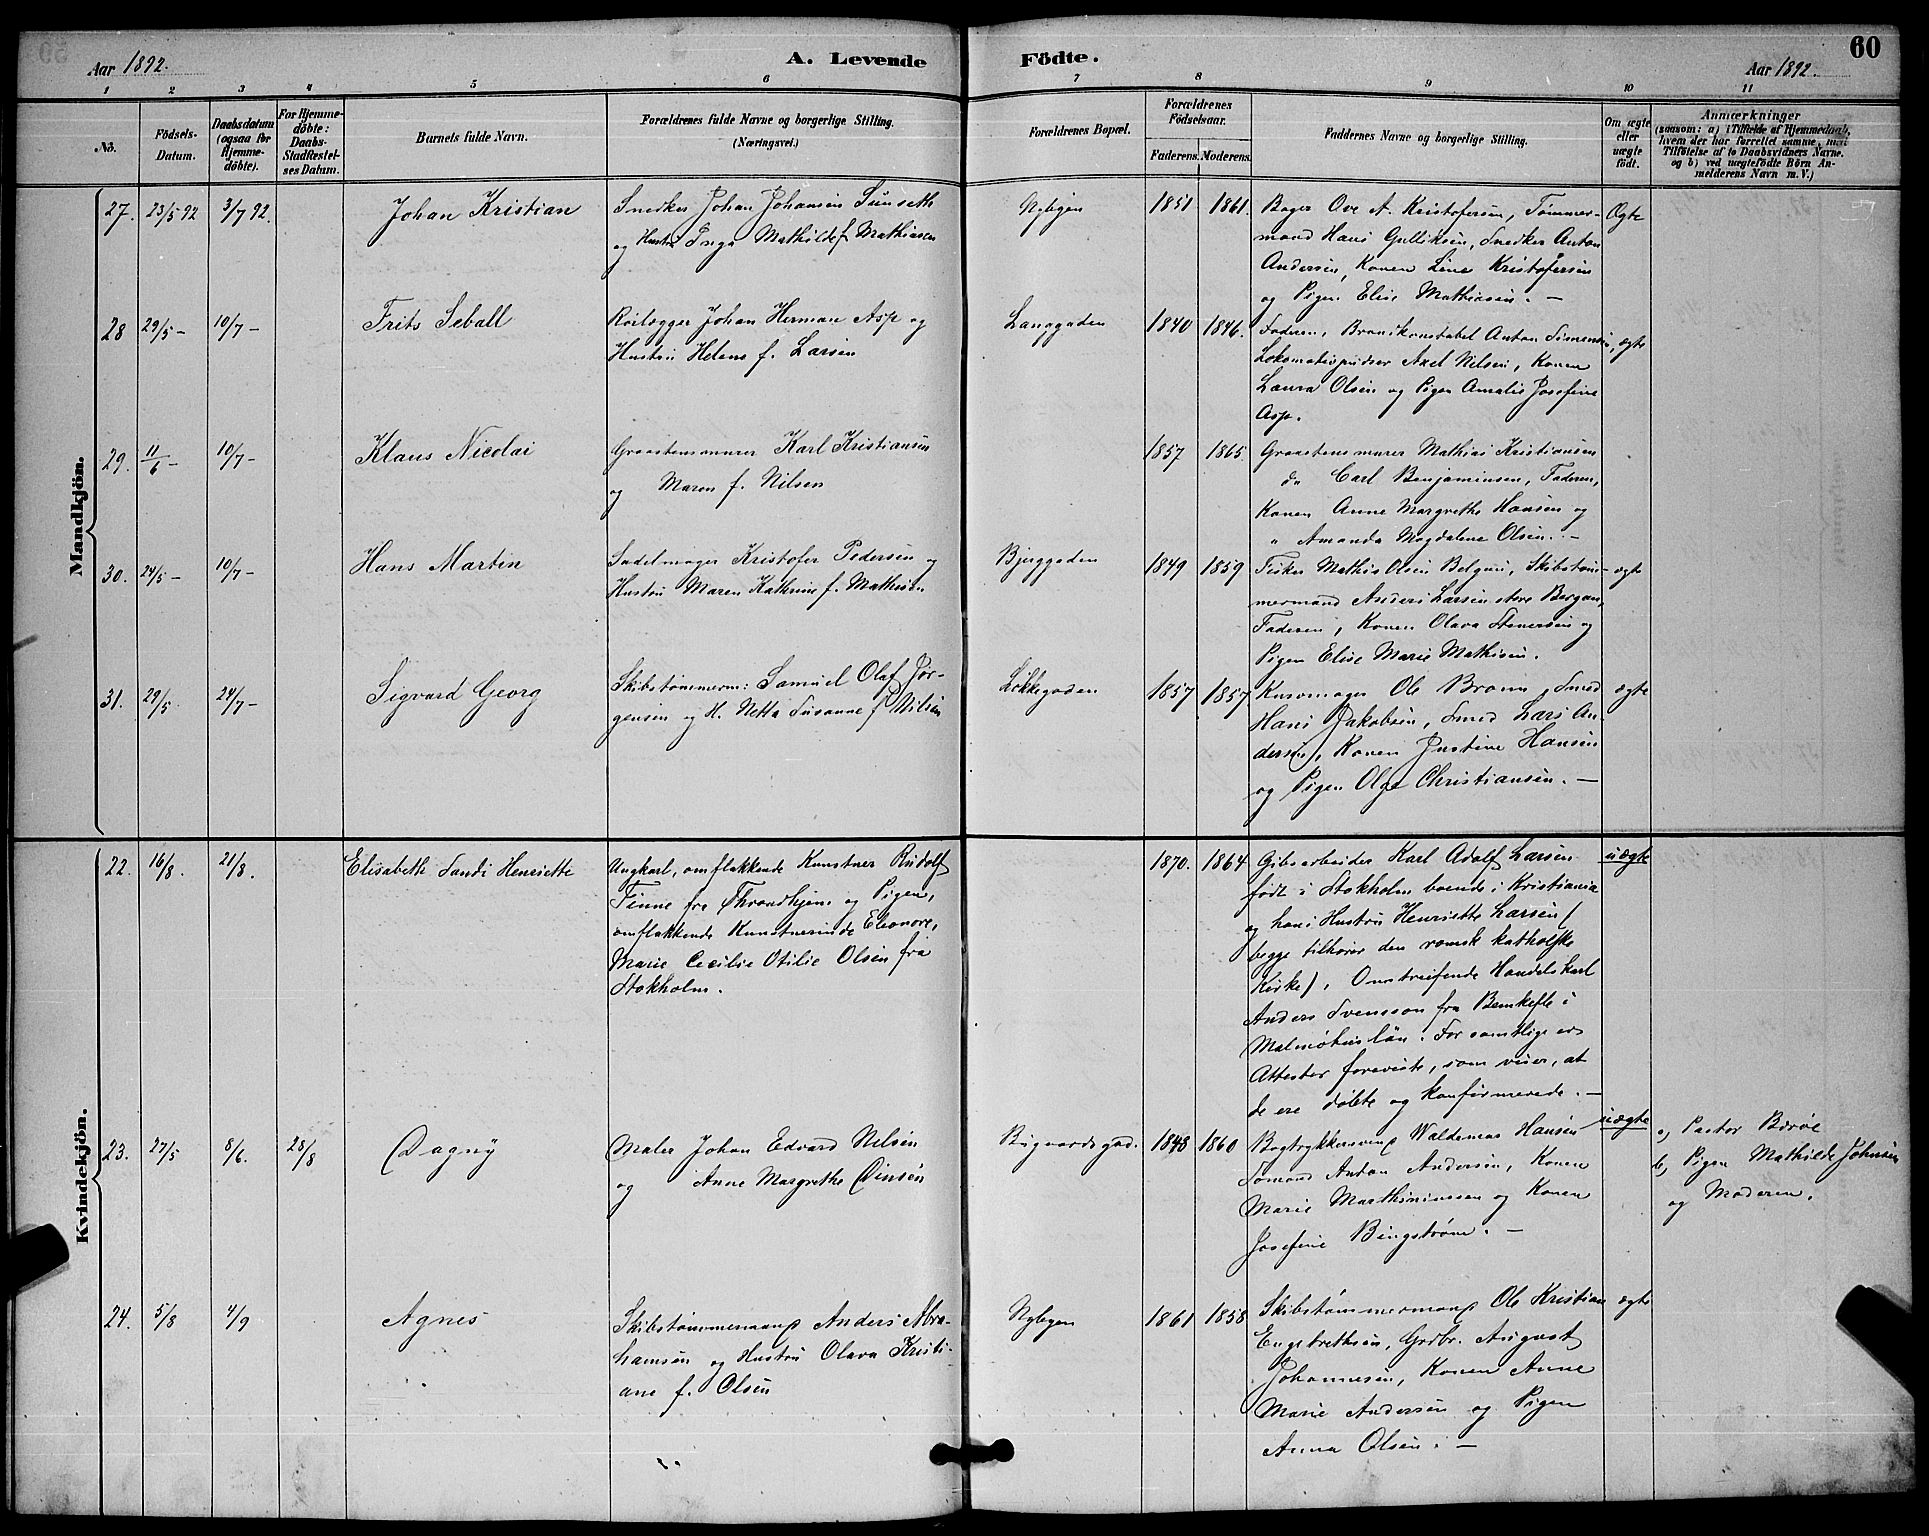 Aar 1892.
A. Levende
Födte.
Aar 1892.
60
1 2 3 4 5 6 7 8 9 10 11
No.
Födsels-
Datum.
Daabsdatum
(ogsaa for
Hjemme-
döbte).
For Hjemme-
döbte:
Daabs-
Stadfæstel-
ses Datum.
Barnets fulde Navn.
Forældrenes fulde Navne og borgerlige Stilling.
(Næringsvei.)
Forældrenes Bopæl.
Forældrenes
Födselsaar.
Faderens. Moderens.
Faddernes Navne og borgerlige Stilling.
Om ægte
eller
uægte
födt.
Anmærkninger
(saasom: a) i Tilfælde af Hjemmedaab,
hvem der har forrettet samme, med
Tilföielse af to Daabsvidners Navne.
og b) ved uægtefödte Börn An-
melderens Navn m. V.)
Mandkjön.
27. 23/5 92 3/7 92. Johan Kristian
Snedker Johan Johansen Sunseth
og Hustru Inga Mathilde f. Mathiasen
Nybyen 1851 1861.
Bager Ove A. Kristofersen, Tømmer-
mand Hans Gulliksen, Snedker Anton
Andersen, Konen Line Kristofersen
og Pigen Elise Mathiasen. —
Ægte
28 29/5 — 10/7 — Frits Seball
Rørlægger Johan Herman Asp og
Hustru Helene f. Larsen
Langgaden 1840 1846.
Faderen, Brandkonstabel Anton Simensen,
Lokomotivpudser Axel Nilsen, Konen
Laura Olsen og Pigen Amalie Josefine
Asp.
ægte
29. 11/6 — 10/7 — Klaus Nicolai
Graastensmurer Karl Kristiansen
og Maren f. Nilsen
1857 1865.
Graastensmurer Mathias Kristiansen
do Carl Benjaminsen, Faderen,
Konen Anne Margrethe Hansen og
" Amanda Magdalene Olsen. —
30. 24/5 — 10/7 — Hans Martin
Sadelmager Kristofer Pedersen og
Hustru Maren Kathrine f. Mathisen
Bjerggaden 1849 1859
Fisker Mathis Olsen Belgen, Skibstøm-
mermand Anders Larsen store Bergan,
Faderen, Konen Olava Stenersen og
Pigen Elise Marie Mathisen.
ægte
31. 29/5. 24/7 — Sigvard Georg
Skibstømmerm: Samuel Olaf Jør-
gensen og H. Netta Susanne f. Nilsen
Løkkegaden 1857 1857
Kurvmager Ole Bromn, Smed
Hans Jakobsen, Smed Lars An-
dersen, Konen Justine Hansen
og Pigen Olga Christiansen. —
ægte
Kvindekjön.
22. 16/8. 21/8. Elisabeth Sandi Henriette
Ungkarl, omflakkende Kunstner Rudolf
Finne fra Throndhjem og Pigen,
omflakkende Kunstnerinde Eleonore,
Marie Cecilie Otilie Olsen fra
Stokholm.
1870. 1864
Gibsarbeider Karl Adolf Larsen
født i Stokholm boende i Kristiania
og hans Hustru Henriette Larsen (
begge tilhører den romsk katholske
Kirke), Omstreifende Handelskarl
Anders Svensson fra Bunkeflo i
Malmöhus län. For samtlige er
Attester foreviste, som viser, at
de ere døbte og konfirmerede. —
uægte
23. 27/5 8/6. 28/8 Dagny
Maler Johan Edvard Nilsen
og Anne Margrethe Dinsen
Bøgaardsgad. 1848 1860
Bogtrykkersvend Waldemar Hansen
Sømand Anton Andersen, Konen
Marie Marthiniussen og Konen
Josefine Bingstrøm. —
uægte
a, Pastor Børøe
b, Pigen Mathilde Johnsen
og Moderen.
24. 5/8 4/9 Agnes
Skibstømmermand Anders Abra-
hamsen og Hustru Olava Kristi-
ane f. Olsen
Nybyen 1861 1858
Skibstømmermand Ole Kristian
Engebrethsen, Grdbr. August
Johannesen, Konen Anne
Marie Andersen og Pigen
Anna Olsen. —
ægte